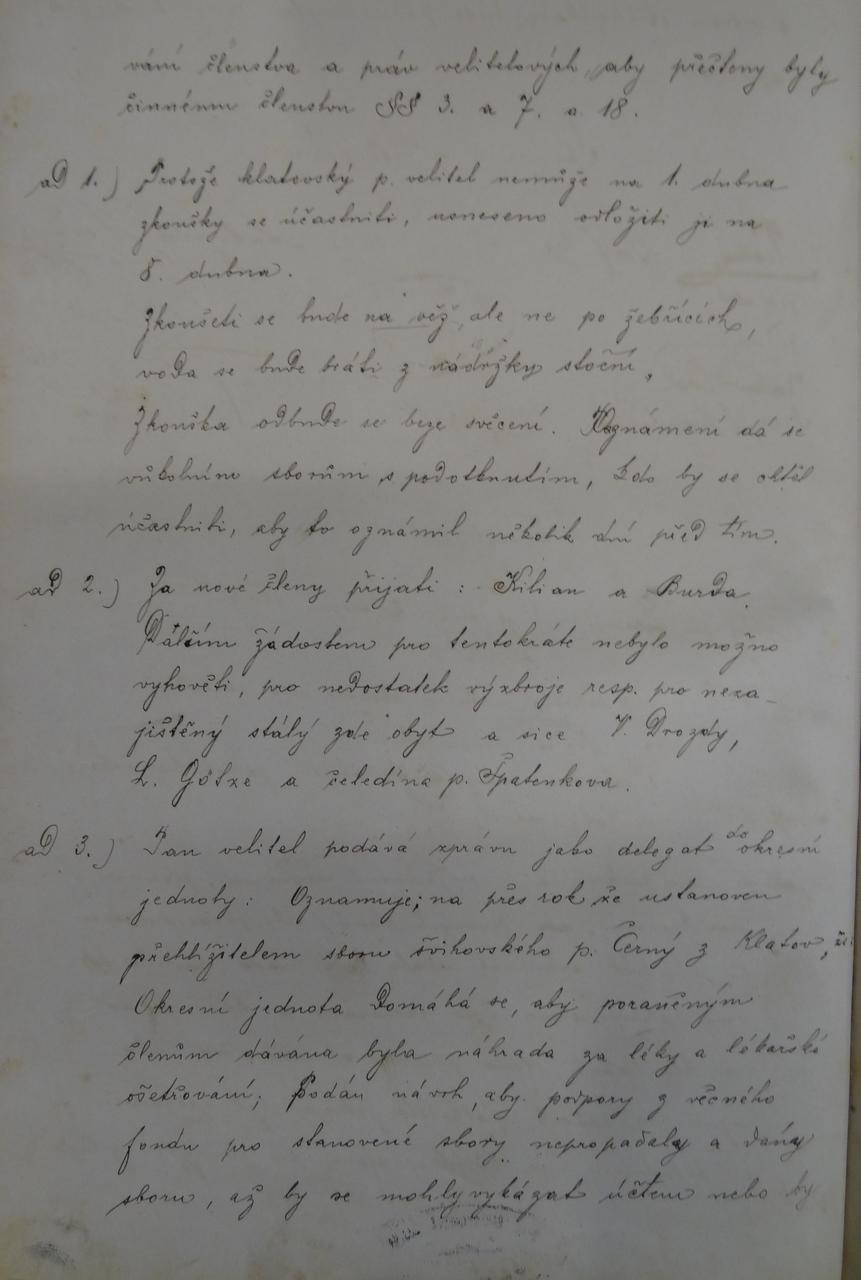 vání členstva a práv velitelových, aby přečteny byly
činnému členstvu §§ 3. a 7. a 18.
ad 1.) Protože klatovský p. velitel nemůže na 1. dubna
zkoušky se účastniti, usneseno odložiti ji na
8. dubna.
Zkoušeti se bude na věž, ale ne po žebřících,
voda se bude bráti z nádržky stoční,
Zkouška odbude se beze svěcení. Oznámení dá se
vůkolním sborům, s podotknutím, kdo by se chtěl
účastniti, aby to oznámil několik dní před tím.
ad 2.) Za nové členy přijati: Kilian a Burda.
Dalším žádostem pro tentokráte nebylo možno
vyhověti, pro nedostatek výzbroje resp. pro neza-
jištěný stálý zde obyt a sice V. Drozdy,
L. Götze a čeledína p. Špatenkova.
ad 3.) Pan velitel podává zprávu jako delegat do okresní
jednoty: Oznamuje; na přes rok že ustanoven
přehlížitelem sboru švihovského p. Černý z Klatov, že
Okresní jednota domáhá se, aby poraněným
členům dávána byla náhrada za léky a lékařské
ošetřování; Podán návrh, aby podpory z věcného
fondu pro stanovené sbory nepropadaly a dány
sboru, až by se mohly vykázat účtem nebo by